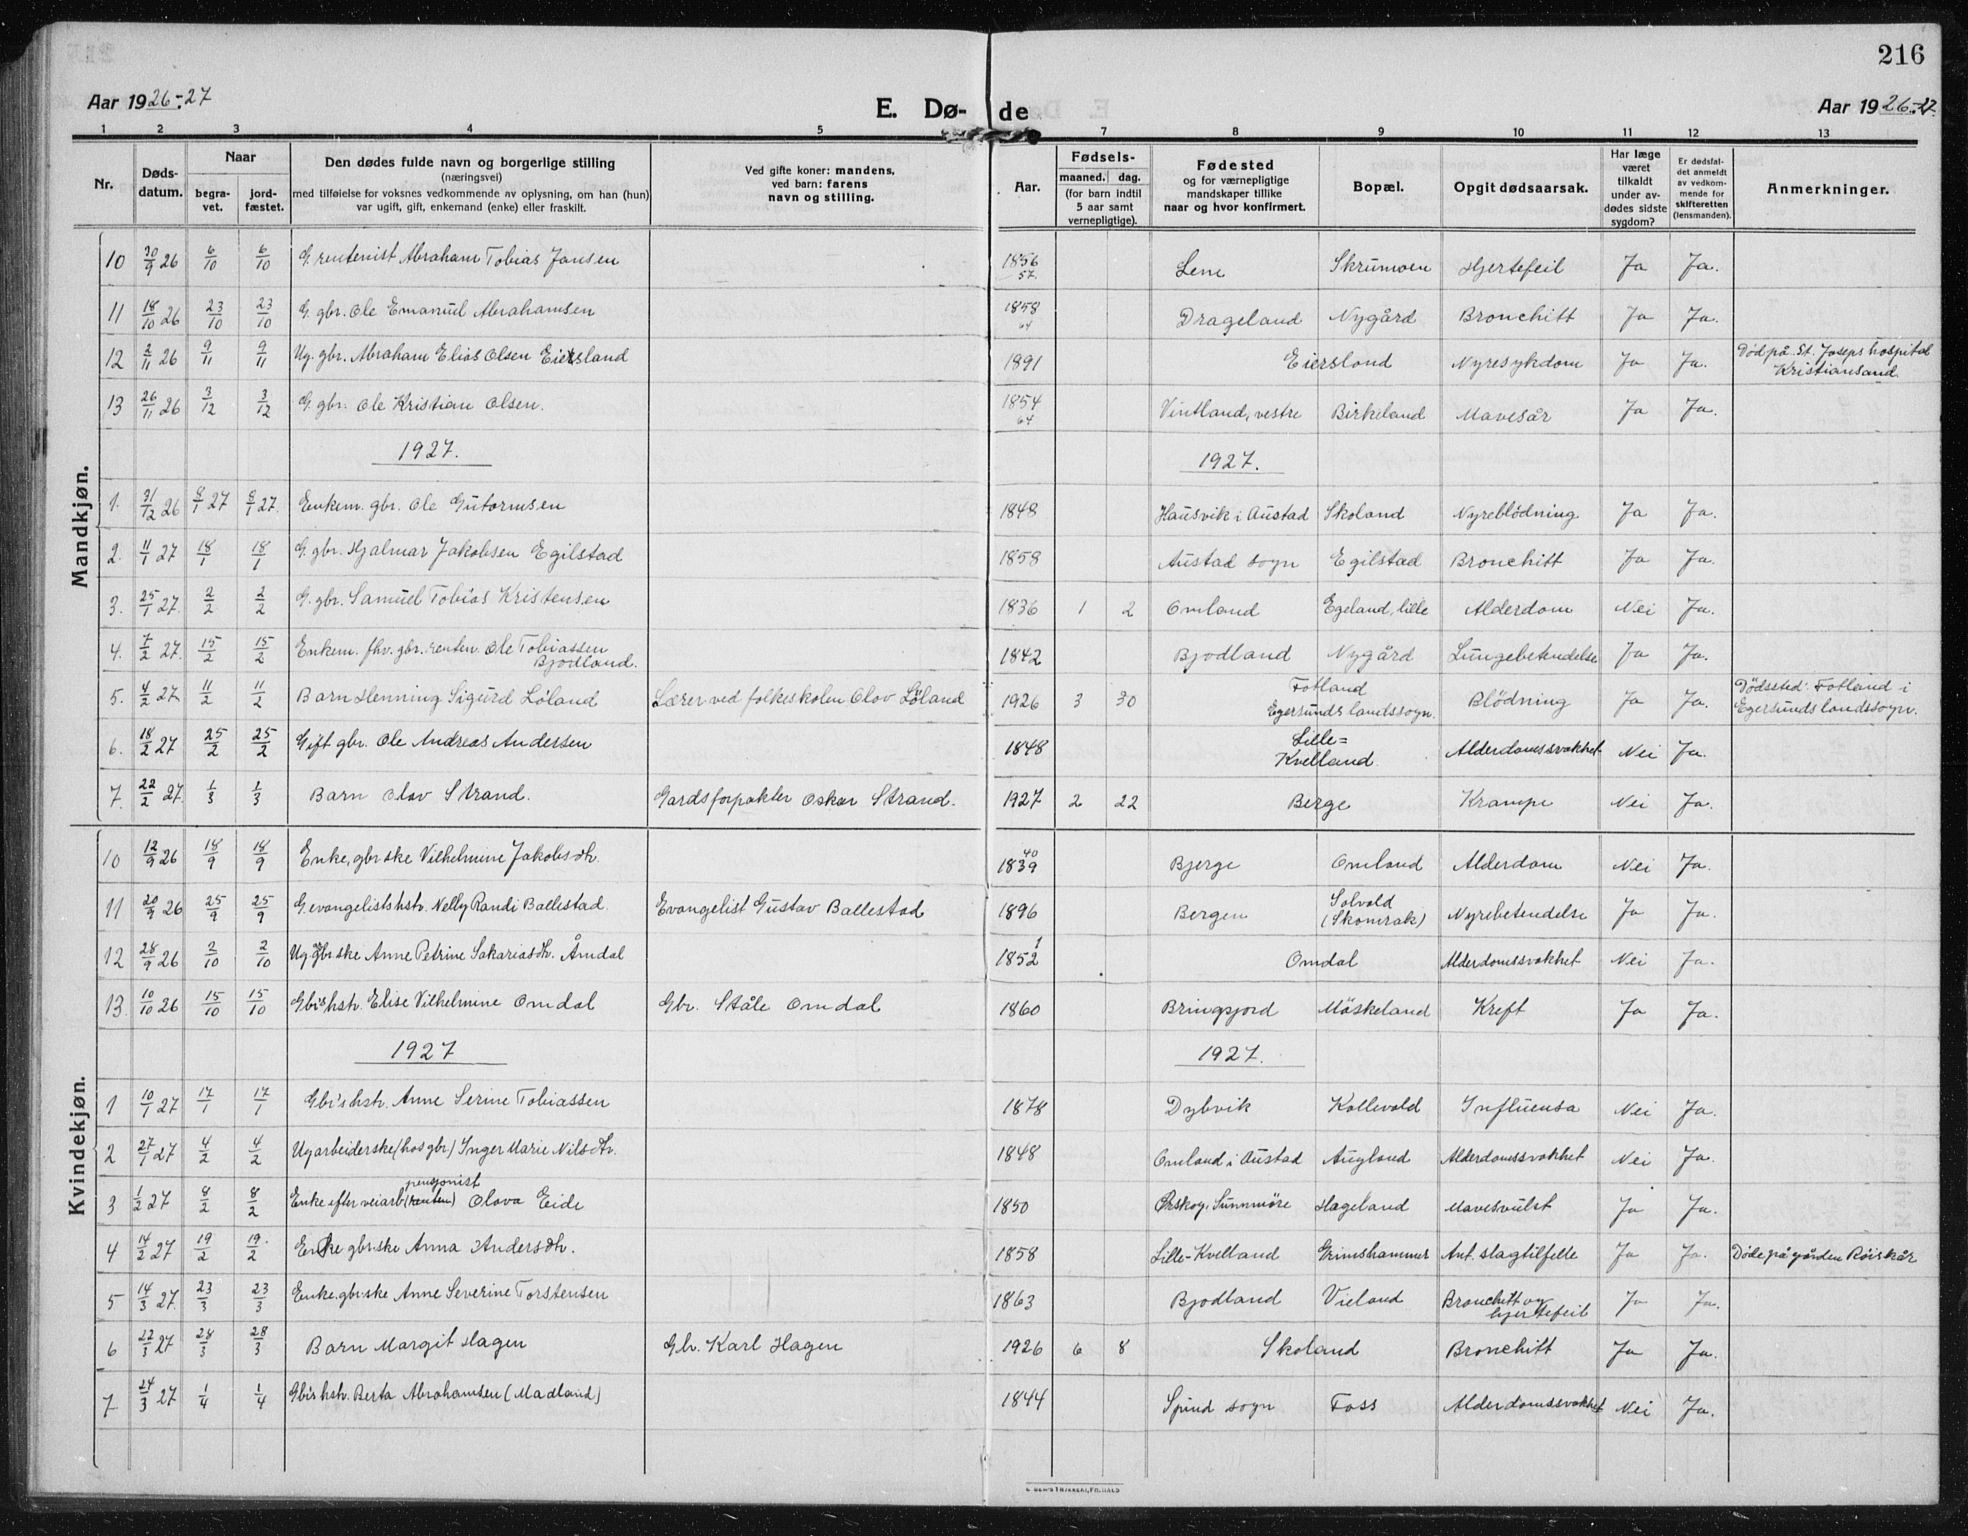 216
Aar 1926-27 E. Dø- de Aar 1926-27.
1 2 3 4 5 7 8 9 10 11 12 13
Nr. Døds-datum. Naar begra-vet. jord-fæstet. Den dødes fulde navn og borgerlige stilling (næringsvei) med tilføielse for voksnes vedkommende av oplysning, om han (hun) var ugift, gift, enkemand (enke) eller fraskilt. Ved gifte koner: mandens, ved barn: farens navn og stilling. Aar. Fødsels- maaned. dag. (for barn indtil 5 aar samt vernepligtige). Fødested og for værnepligtige mandskaper tillike naar og hvor konfirmert. Bopæl. Opgit dødsaarsak. Har læge været tilkaldt under av-dødes sidste sygdom? Er dødsfal-det anmeldt av vedkom-mende for skifteretten (lensmanden). Anmerkninger.
Mandkjøn.
10 30/9 26 6/10 6/10 G. rentenist Abraham Tobias Jansen 1856 57. Lene Skrumoen Hjertefeil Ja Ja.
11 18/10 26 23/10 23/10 G. gbr. Ole Emanuel Abrahamsen 1858 64 Drageland Nygård Bronchitt Ja Ja.
12 2/11 26 9/11 9/11 Ug. gbr. Abraham Elias Olsen Eiersland 1891 Eiersland Nyresykdom Ja Ja. Død på St. Joseps hospital Kristiansand.
13 26/11 26 3/12 3/12 G. gbr. Ole Kristian Olsen. 1854 64 Vintland, vestre Birkeland Mavesår Ja Ja.
1927. 1927.
1. 31/12 26 8/1 27 8/1 27. Enkem. gbr. Ole Gutormsen 1848 Hausvik i Austad Skoland Nyreblödning Ja Ja.
2. 11/1 27 18/1 18/1 G. gbr. Hjalmar Jakobsen Egilstad 1858 Austad sogn Egilstad Bronchitt Ja Ja.
3. 25/1 27. 2/2 2/2 G. gbr. Samuel Tobias Kristensen 1836 1 2 Omland Egeland, lille Alderdom Nei Ja.
4. 7/2 27. 15/2 15/2 Enkem. fhv. gbr. renten. Ole Tobiassen Bjodland. 1842 Bjodland Nygård Lungebetendelse Ja Ja.
5. 4/2 27. 11/2 11/2 Barn Henning Sigurd Löland Lærer ved folkeskolen Olov Löland 1926 3 30 Fotland Egersunds landssogn. Blödning Ja Ja. Dödssted: Fotland i Egersunds landssogn.
6. 18/2 27 25/2 25/2 Gift gbr. Ole Andreas Andersen 1848 Lille= Kvelland. Alderdomssvakhet Nei Ja.
7. 22/2 27. 1/3 1/3 Barn Olav Strand. Gardsforpakter Oskar Strand. 1927 2 22 Berge Krampe Nei Ja.
Kvindekjøn.
10 12/9 26 18/9 18/9 Enke, gbrske Vilhelmine Jakobsdtr. 1839 40 Bjerge Omland Alderdom Nei Ja.
11 20/9 26 25/9 25/9 G. evangelistshstr. Nelly Randi Ballestad. Evangelist Gustav Ballestad 1896 Bergen Solvold (Skomrak) Nyrebetendelse Ja Ja.
12 28/9 26 2/10 2/10 Ug. gbrske Anne Petrine Sakariasdtr. Åmdal 1852 1 Omdal Alderdomssvakhet Nei Ja.
13. 10/10 26 15/10 15/10 Gbrshstr. Elise Vilhelmine Omdal Gbr. Ståle Omdal 1860 Bringsjord Möskeland Kreft Ja Ja.
1927 1927.
1 10/1 27 17/1 17/1 Gbr's hstr. Anne Serine Tobiassen 1878 Dybvik Kollevold Influensa Nei Ja.
2 27/1 27 4/2 4/2 Ug arbeiderske (hos gbr) Inger Marie Nilsdtr. 1848 Omland i Austad Augland Alderdomssvakhet Nei Ja.
3 1/2 27 8/2 8/2 Enke efter veiarb (renten) pensjonist Olava Eide 1850 Ørskog, Sunnmöre Hageland Mavesvulst Ja Ja.
4 14/2 27 19/2 19/2 Enke gbrske Anna Andersdtr. 1858 Lille-Kvelland Grimshammer Ant. slagtilfelle Ja Ja. Döde på gården Röiskår
5 14/3 27. 23/3 23/3 Enke. gbrske Anne Severine Torstensen 1863 Bjodland Vieland Bronchitt og hjertefeil Ja Ja.
6 22/3 27 28/3 28/3 Barn Margit Hagen Gbr. Karl Hagen 1926 6 8 Skoland Bronchitt Ja Ja.
7. 24/3 27 1/4 1/4 Gbrs hstr. Berta Abrahamsen (Madland) 1844 Spind sogn Foss Alderdomssvakhet Nei Ja.